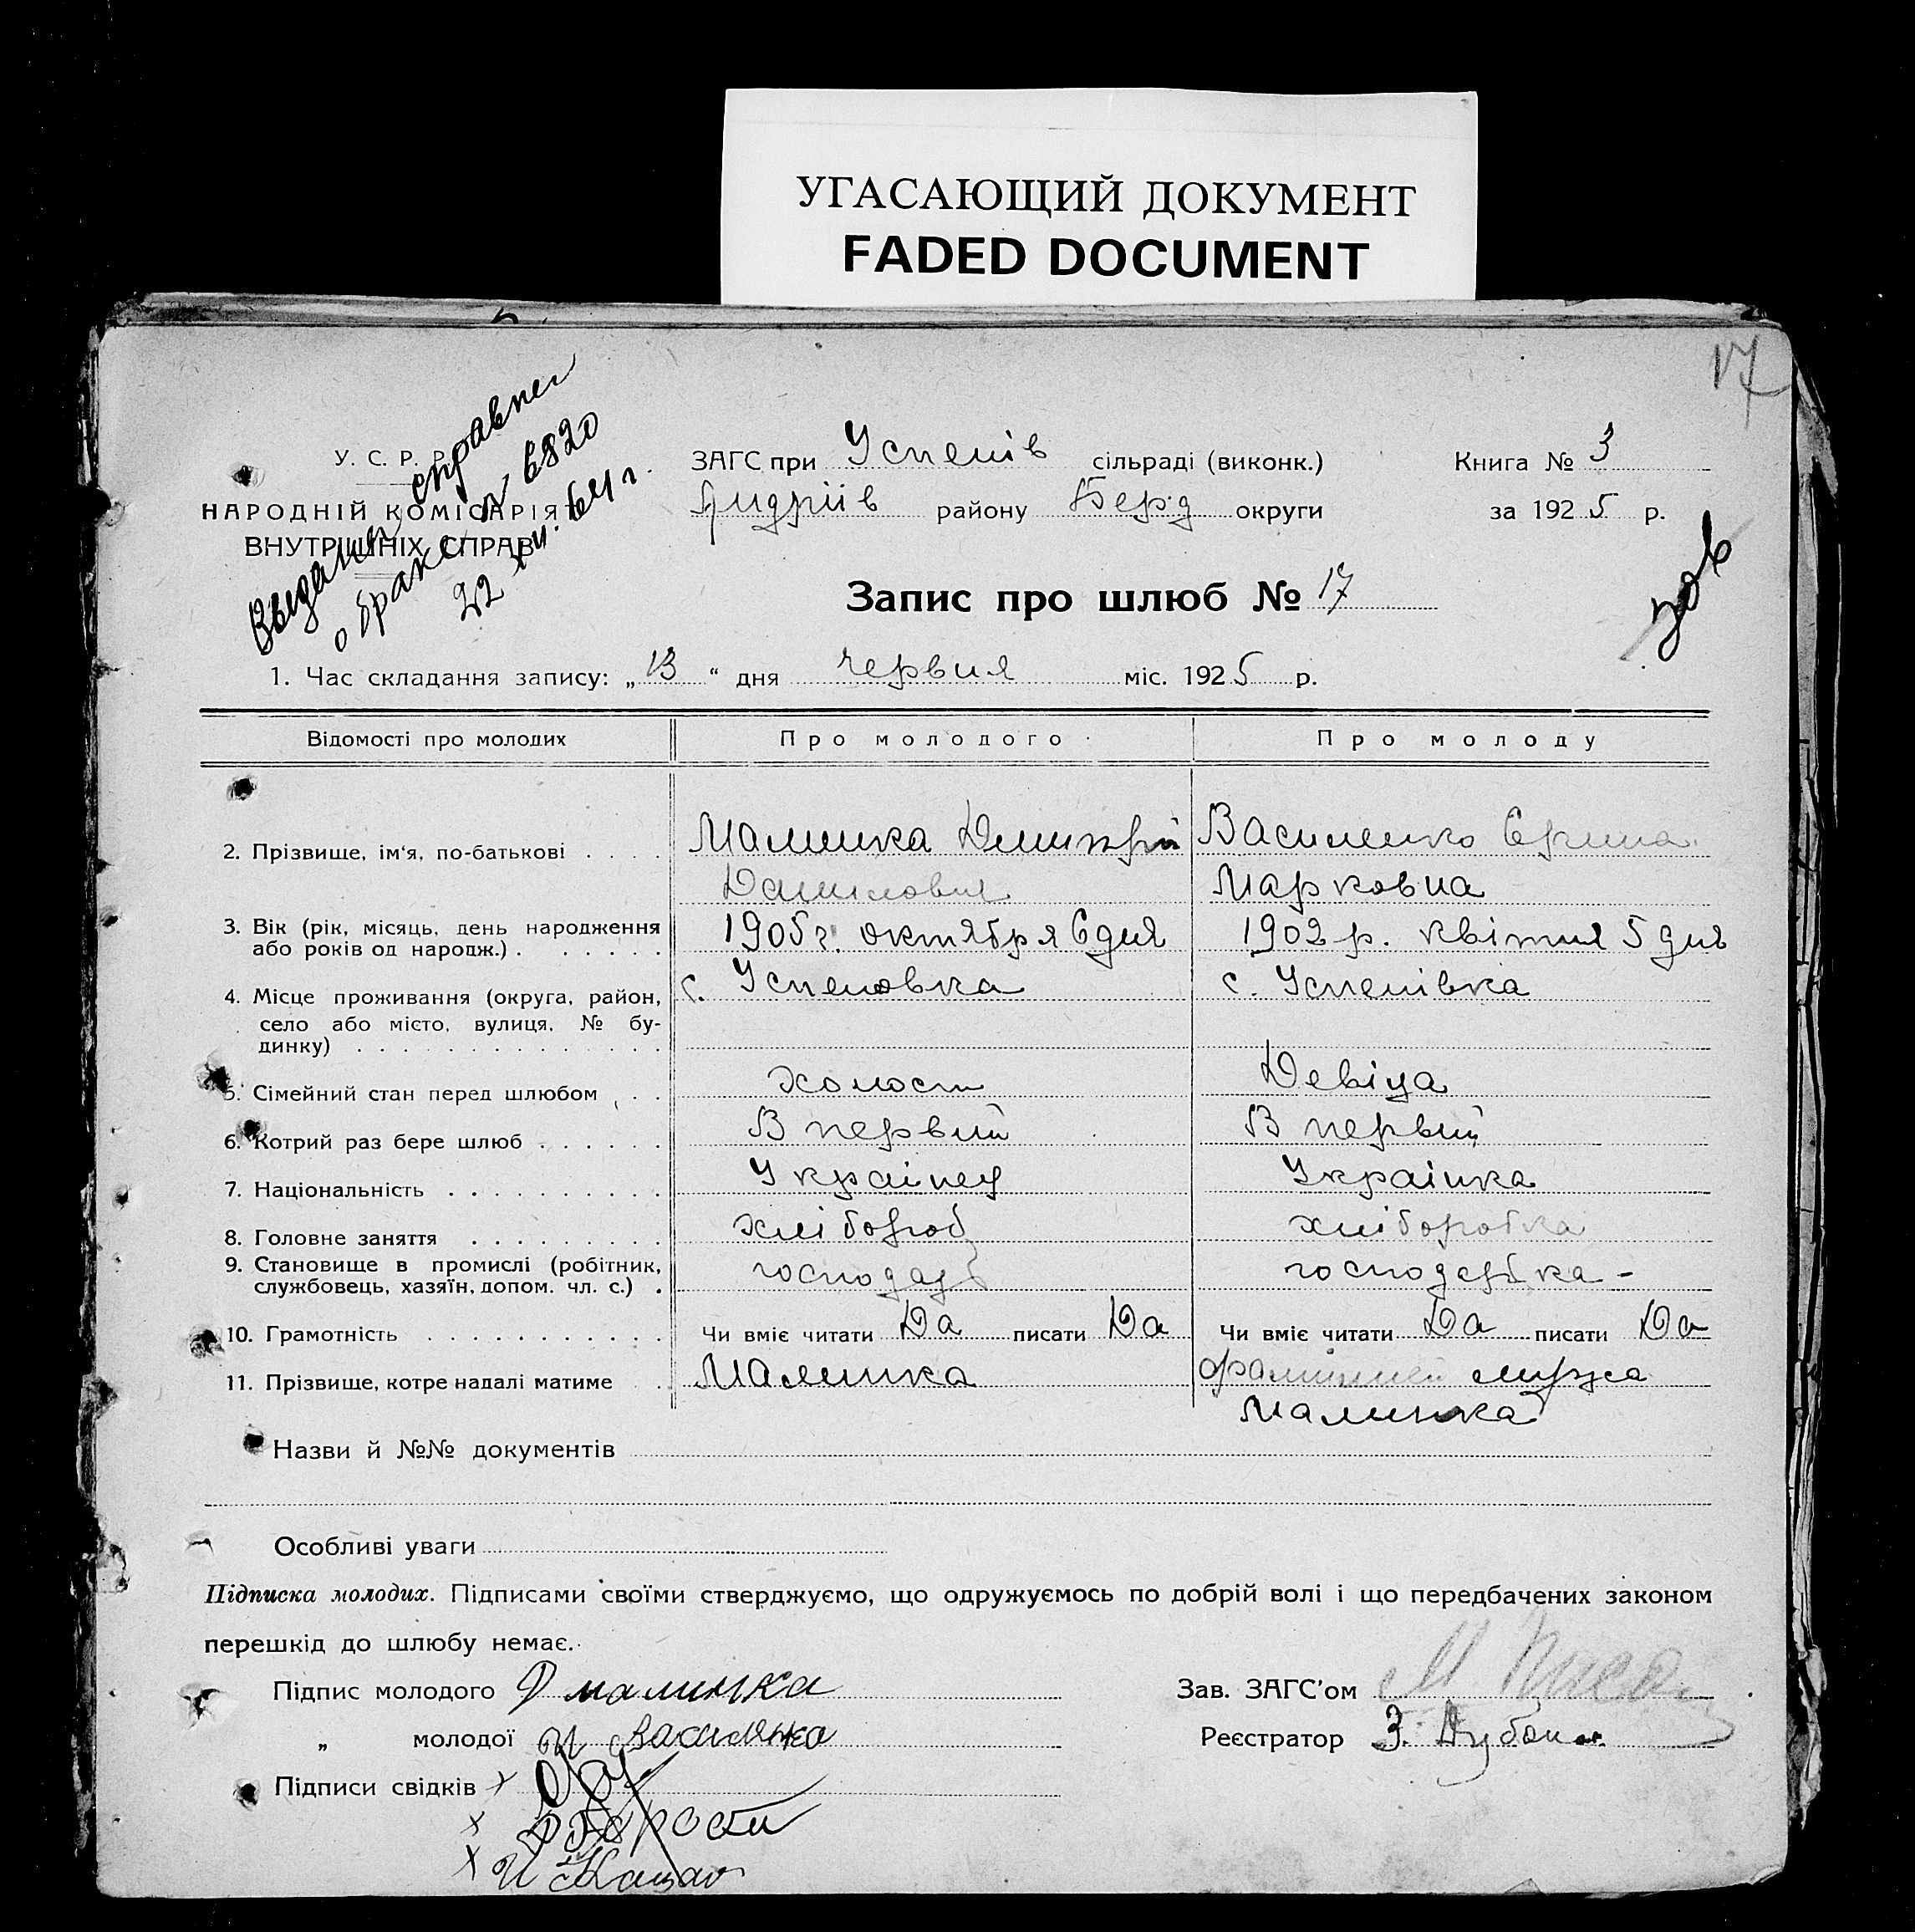 УГАСАЮЩИЙ ДОКУМЕНТ
FADED DOCUMENT
17
У. С. Р. Р.
НАРОДНІЙ КОМІСАРІЯТ
ВНУТРІШНІХ СПРАВ
справки
о браке № 6820
22 XII. 64 г.
ЗАГС при Успенів сільраді (виконк.) Книга № 3
Андріїв району Берд округи за 1925 р.
Запис про шлюб № 17
1. Час складання запису: „13“ дня червня міс. 1925 р.
Відомості про молодих Про молодого Про молоду
2. Прізвище, ім‘я, по-батькові . . . . Малинка Дмитрій Василенко
Данилович Марковна
3. Вік (рік, місяць, день народження 1905 г. октября 6 дня 1902 р. квітня 5 дня
або років од народж.) . . . . . .
4. Місце проживання (округа, район, с. Успеновка с. Успенівка
село або місто, вулиця, № бу-
динку) . . . . . . . . . . . . . .
5. Сімейний стан перед шлюбом . . . холост Девіца
6. Котрий раз бере шлюб . . . . . . В первий В первий
7. Національність . . . . . . . . . . Украінец Украінка
8. Головне заняття . . . . . . . . . хлібороб хліборобка
9. Становище в промислі (робітник, господарь господарька -
службовець, хазяїн, допом. чл. с.) .
10. Грамотність . . . . . . . . . . . Чи вміє читати Да писати Да Чи вміє читати Да писати Да
11. Прізвище, котре надалі матиме . Малинка мужа
Малинка
Назви й №№ документів
Особливі уваги
Підписка молодих. Підписами своїми стверджуємо, що одружуємось по добрій волі і що передбачених законом
перешкід до шлюбу немає.
Підпис молодого Д малинка Зав. ЗАГС’ом
„ молодої Реєстратор З.
Підписи свідків х
х
х